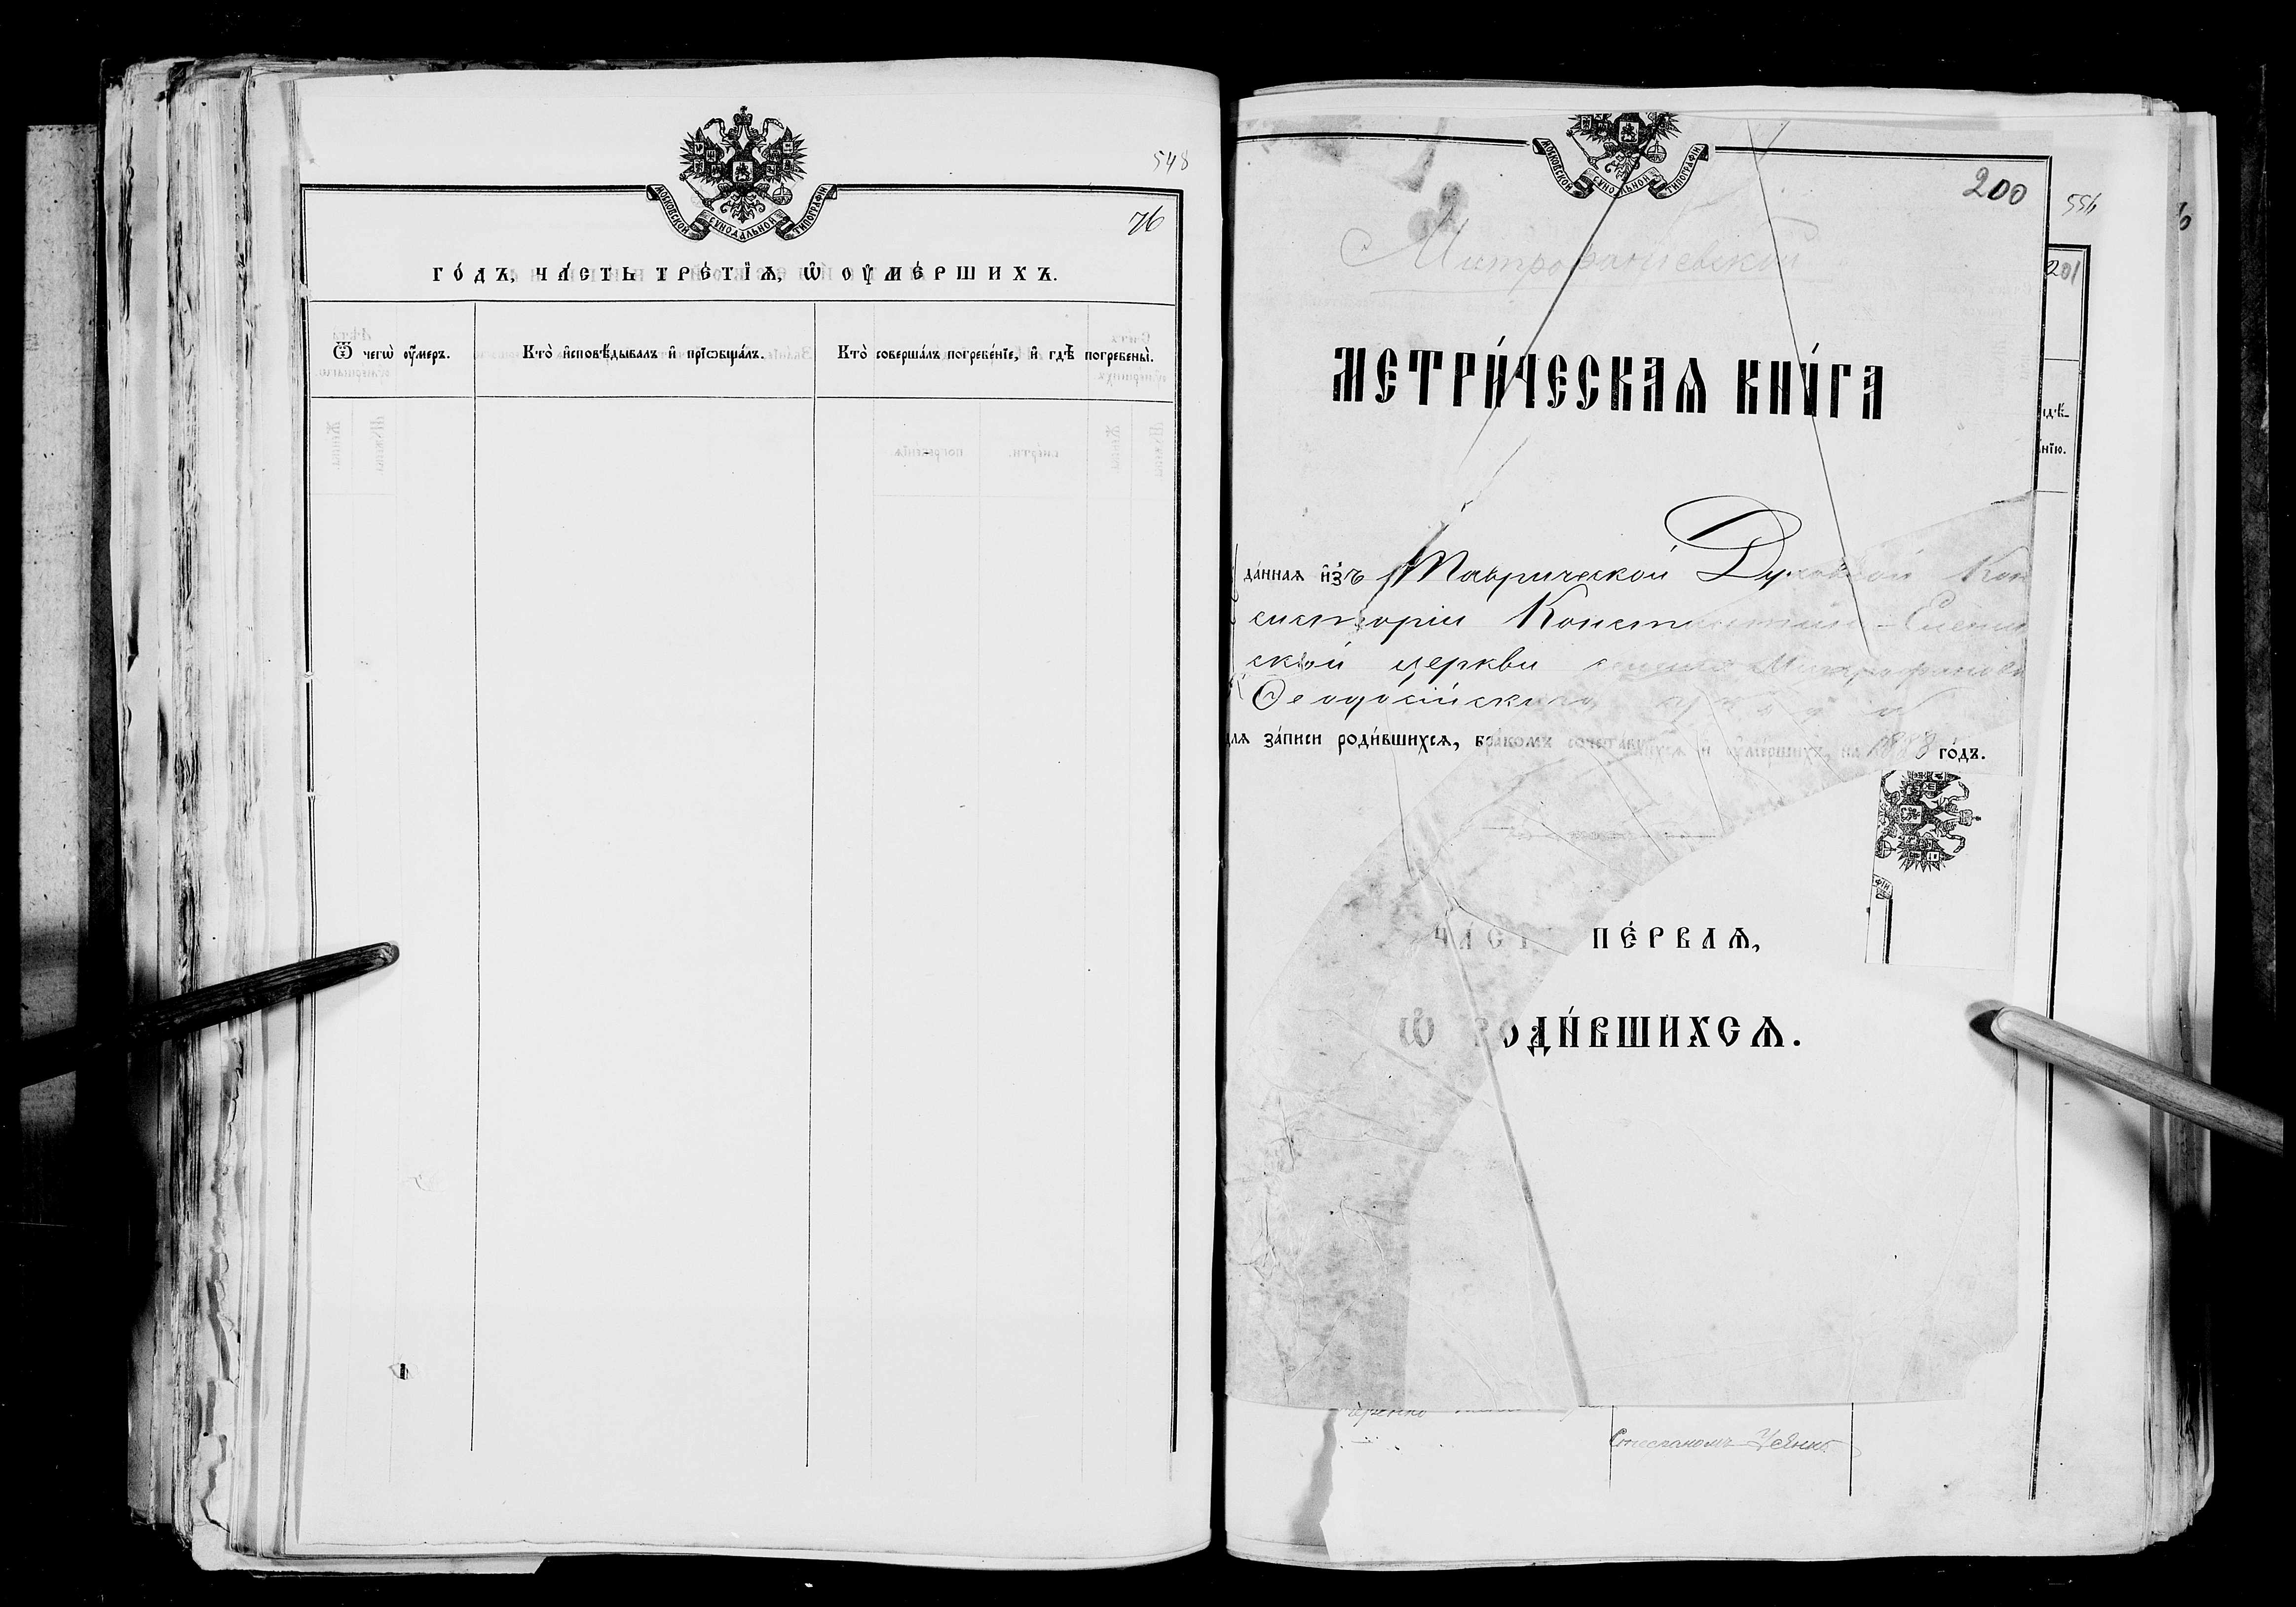 548
МОСКОВСКОЙ СѴНОДАЛЬНОЙ ТИПОГРАФІИ
76
го́дъ, ча́сть тре́тїѧ, ѡ҆ ᲂу҆ме́ршихъ.
Ѿ чегѡ̀ ᲂу҆́меръ.
Кто̀ и҆сповѣ́дывалъ и҆ прїѡбща́лъ.
Кто̀ соверша́лъ погребе́нїе, и҆ гдѣ̀ погребены̀.
МОСКОВСКОЙ СѴНОДАЛЬНОЙ ТИПОГРАФІИ
200
201
Митрофаніевской
МЕТРИ́ЧЕСКАѦ КНИ́ГА
да́ннаѧ и҆з̾ Таврической Духовной Кон
систоріи Константино-Еленин
ской церкви селенія Митрофанов
Ѳеодосійскаго уезда
для за́писи роди́вшихсѧ, бра́комъ сочета́вшихсѧ и҆ ᲂу҆ме́ршихъ, на 1888 го́дъ.
ЧА́СТЬ ПЕ́РВАѦ,
Ѡ҆ РОДИ́ВШИХСѦ.